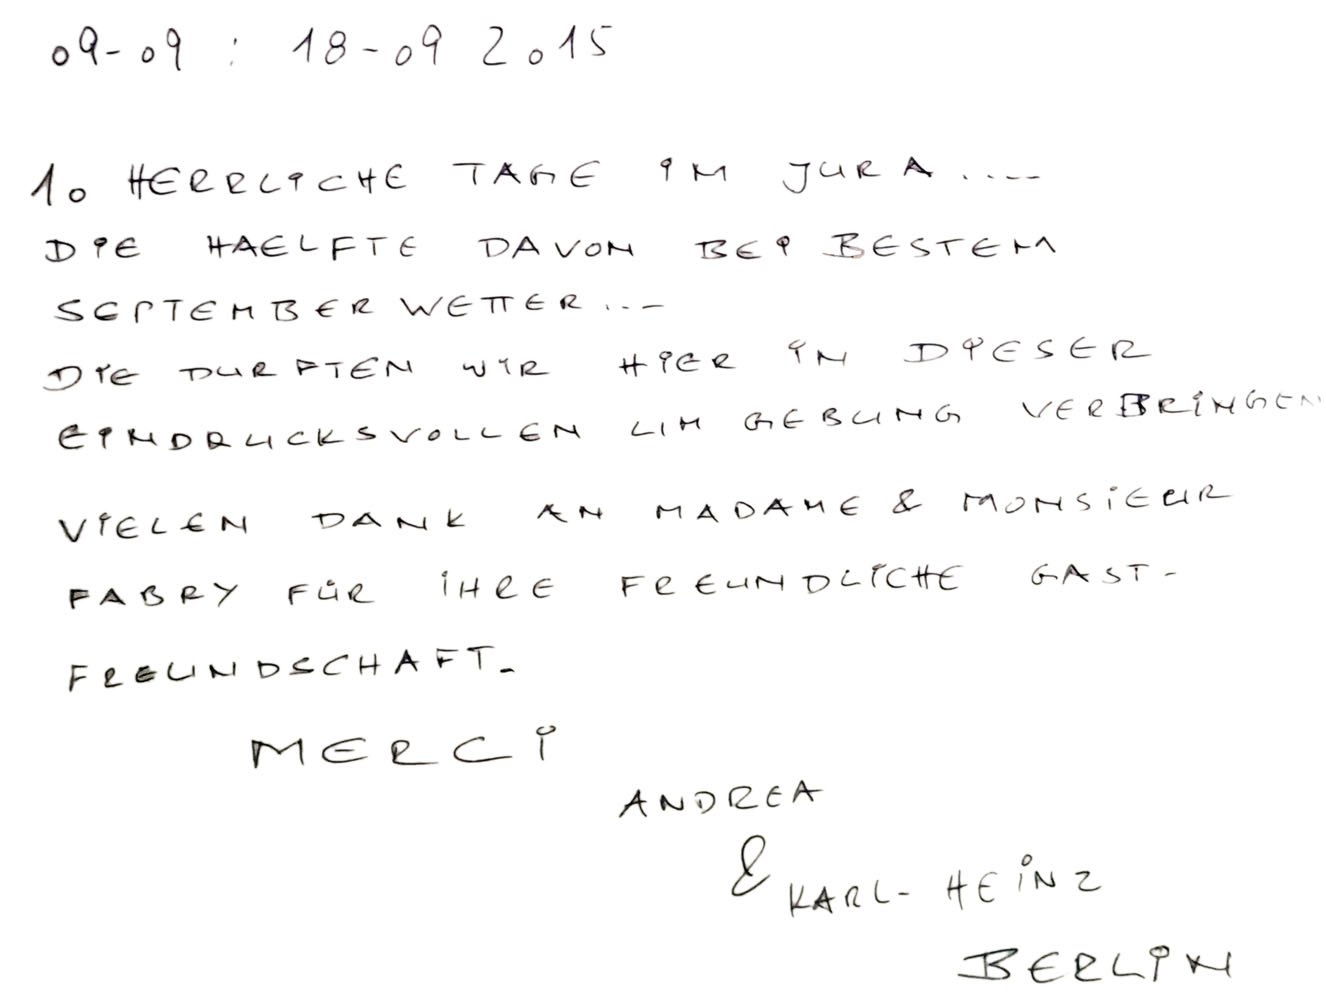 09-09 : 18-09 2015
10 HERRLICHE TAGE IM JURA .....
DIE HAELFTE DAVON BEI BESTEM
SEPTEMBERWETTER ...
DIE DURFTEN WIR HIER IN DIESER
EINDRUCKSVOLLEN UMGEBUNG VERBRINGEN
VIELEN DANK AN MADAME & MONSIEUR
FABRY FÜR IHRE FREUNDLICHE GAST-
FREUNDSCHAFT.
MERCI
ANDREA
& KARL-HEINZ
BERLIN